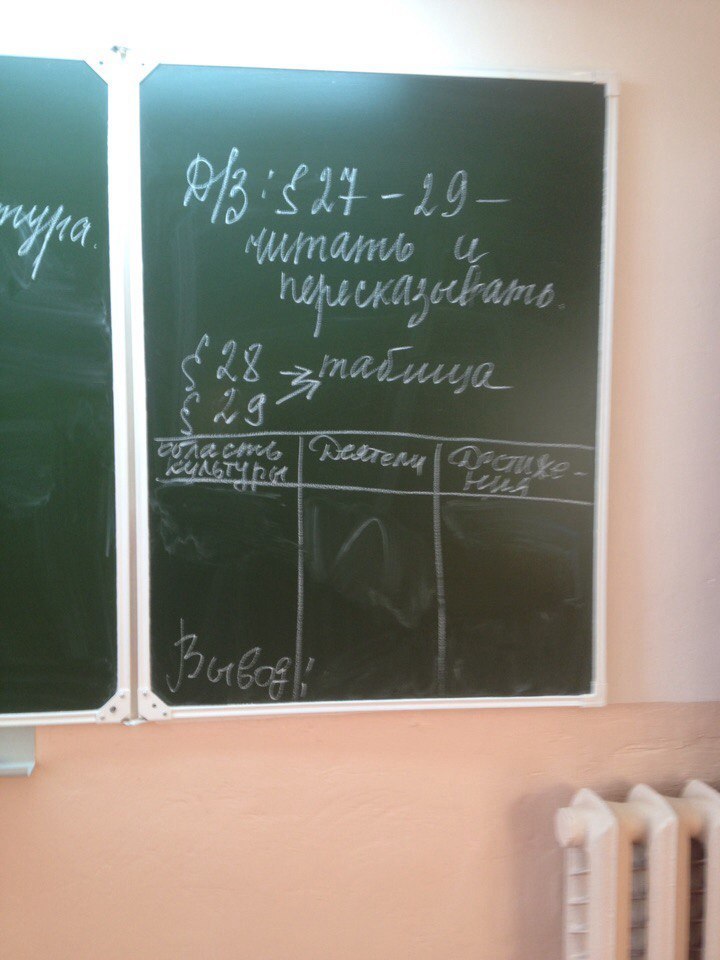 тура.
Д/З: § 27 - 29 -
читать и
пересказывать.
§ 28 → таблица
§ 29
область культуры | Деятели | Достиже-ния
Вывод: